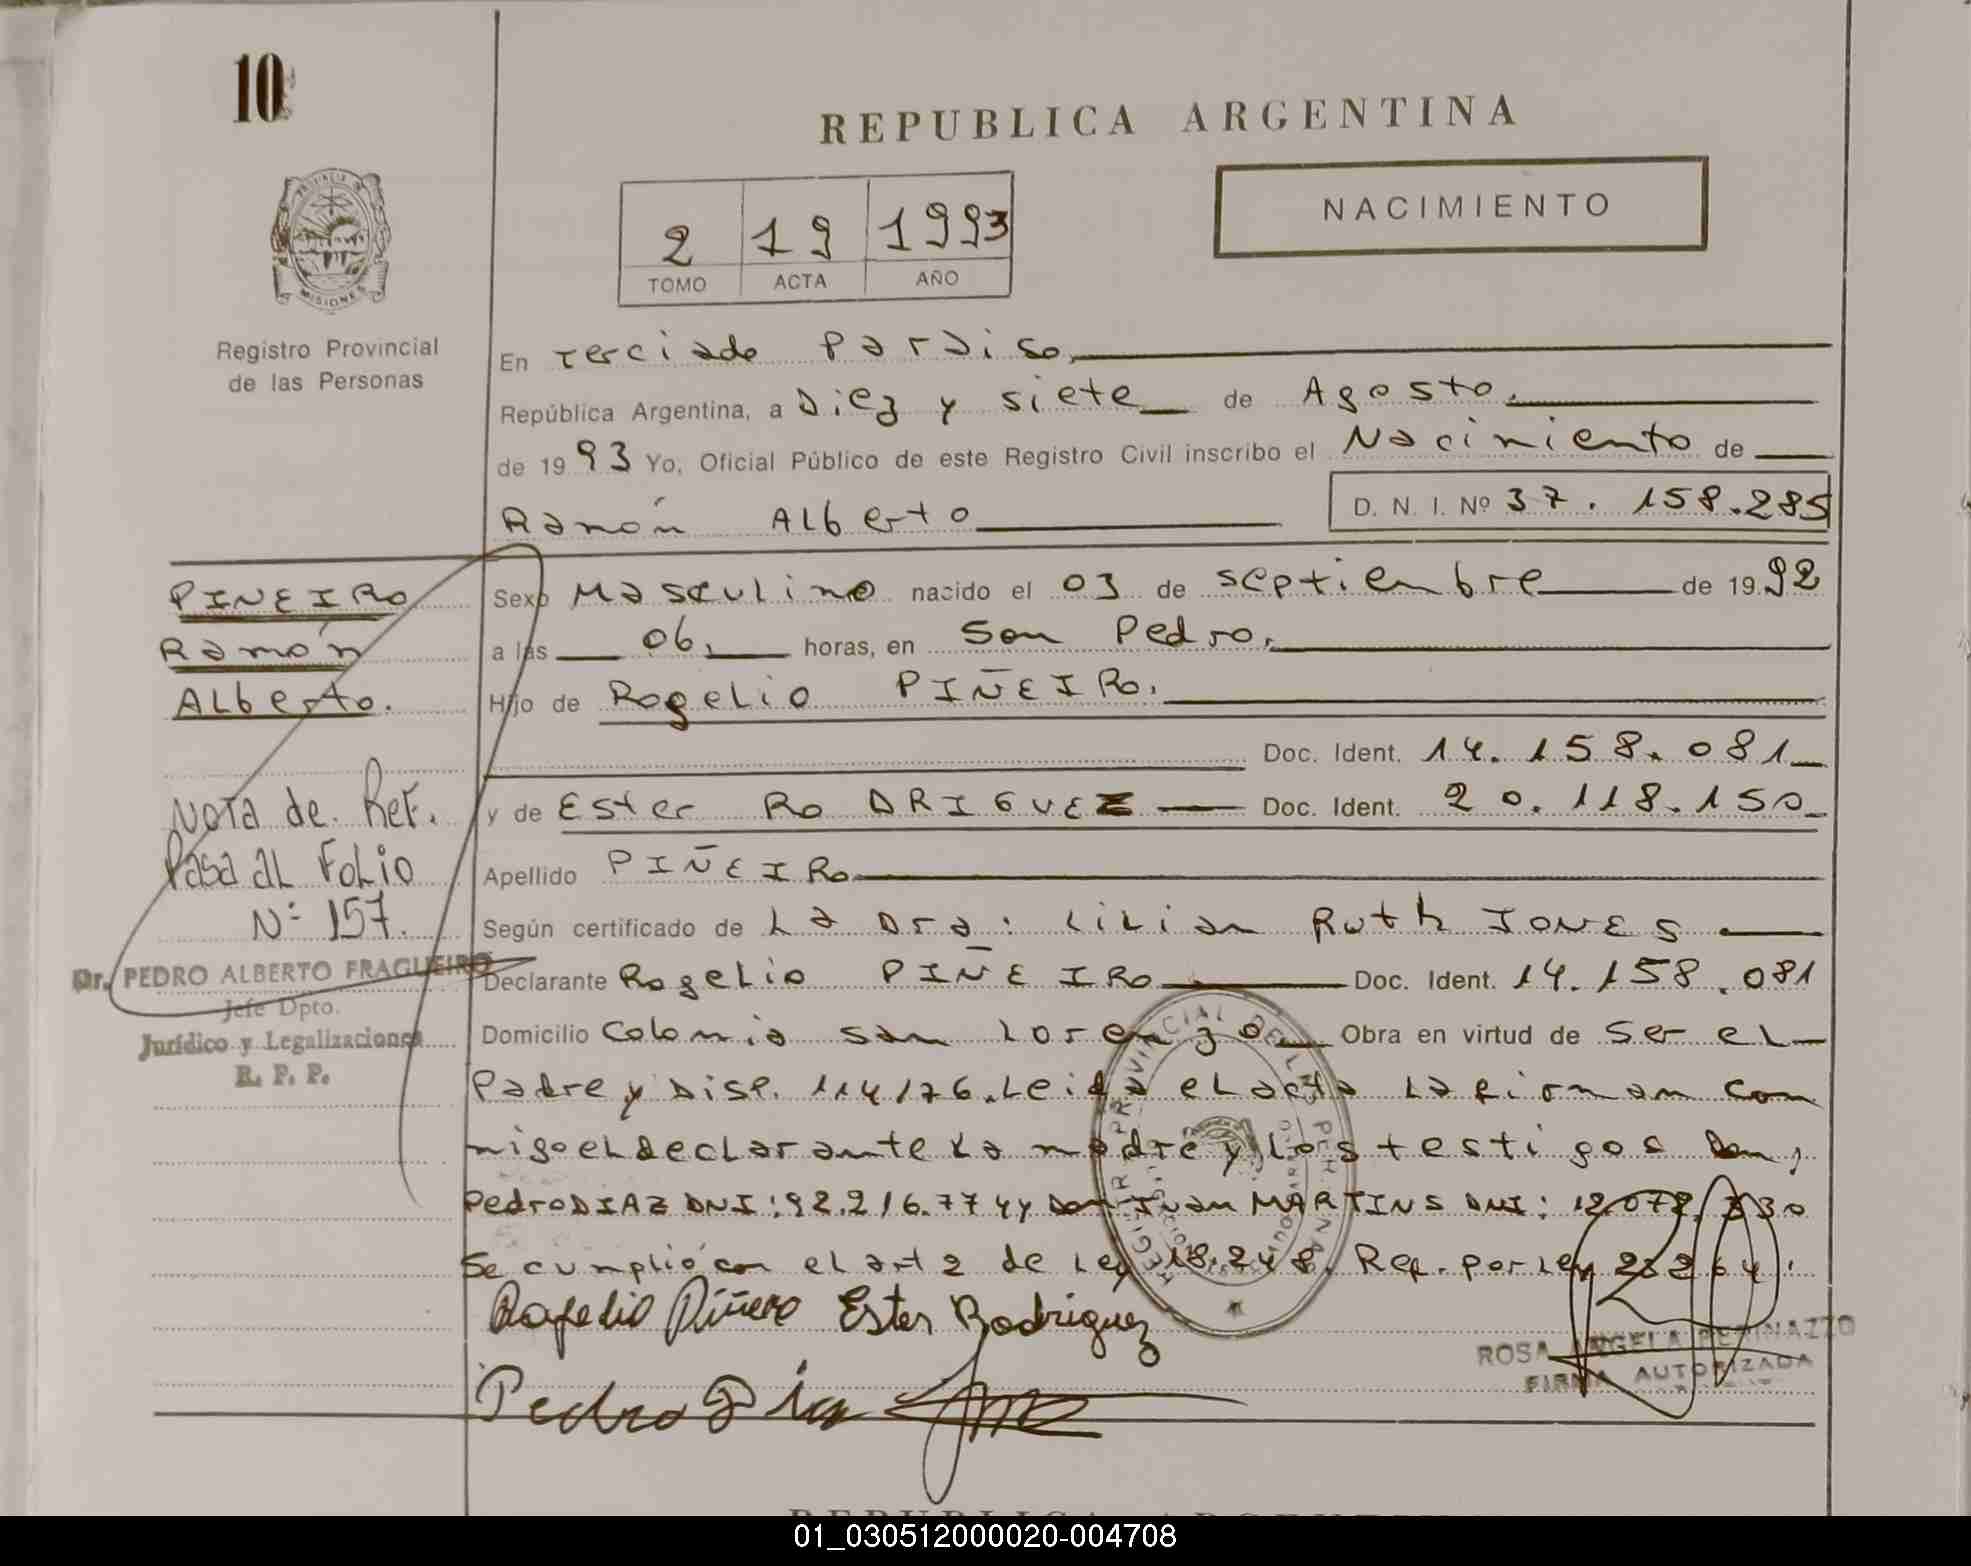 10
REPUBLICA ARGENTINA
NACIMIENTO
2 19 1993
TOMO ACTA AÑO
PROVINCIA DE
MISIONES
Registro Provincial
de las Personas
En Terciado Paraiso,
República Argentina, a Diez y siete de Agosto,
de 1993 Yo, Oficial Público de este Registro Civil inscribo el Nacimiento de
Ramón Alberto D. N. I. Nº 37.158.285
PINEIRO
Ramón
Alberto.
Sexo Masculino nacido el 03 de septiembre de 1992
a las 06, horas, en San Pedro,
Hijo de Rogelio PIÑEIRO.
Doc. Ident. 14.158.081
y de Ester RODRIGUEZ Doc. Ident. 20.118.150
Apellido PIÑEIRO
Según certificado de La Dra: Lilian Ruth JONES
Declarante Rogelio PIÑEIRO Doc. Ident. 14.158.081
Domicilio Colonia san Lorenzo Obra en virtud de ser el
Padre y Disp. 114/76. Leida el acta La firman con
migo el declarante La madre y Los testigos Don,
Pedro DIAZ DNI: 92.216.774 y Don Juan MARTINS DNI: 12.078.330
Se cumplió con el art 2 de Ley 18.248. Ref. por Ley 23264.
Nota de Ref.
Pasa al Folio
Nº 157.
Dr. PEDRO ALBERTO FRAGUEIRO
Jefe Dpto.
Jurídico y Legalizaciones
R. P. P.
Rogelio Piñero Ester Rodriguez
Pedro Diaz
ROSA ANGELA PERINAZZO
FIRMA AUTORIZADA
REPUBLICA ARGENTINA
01_030512000020-004708